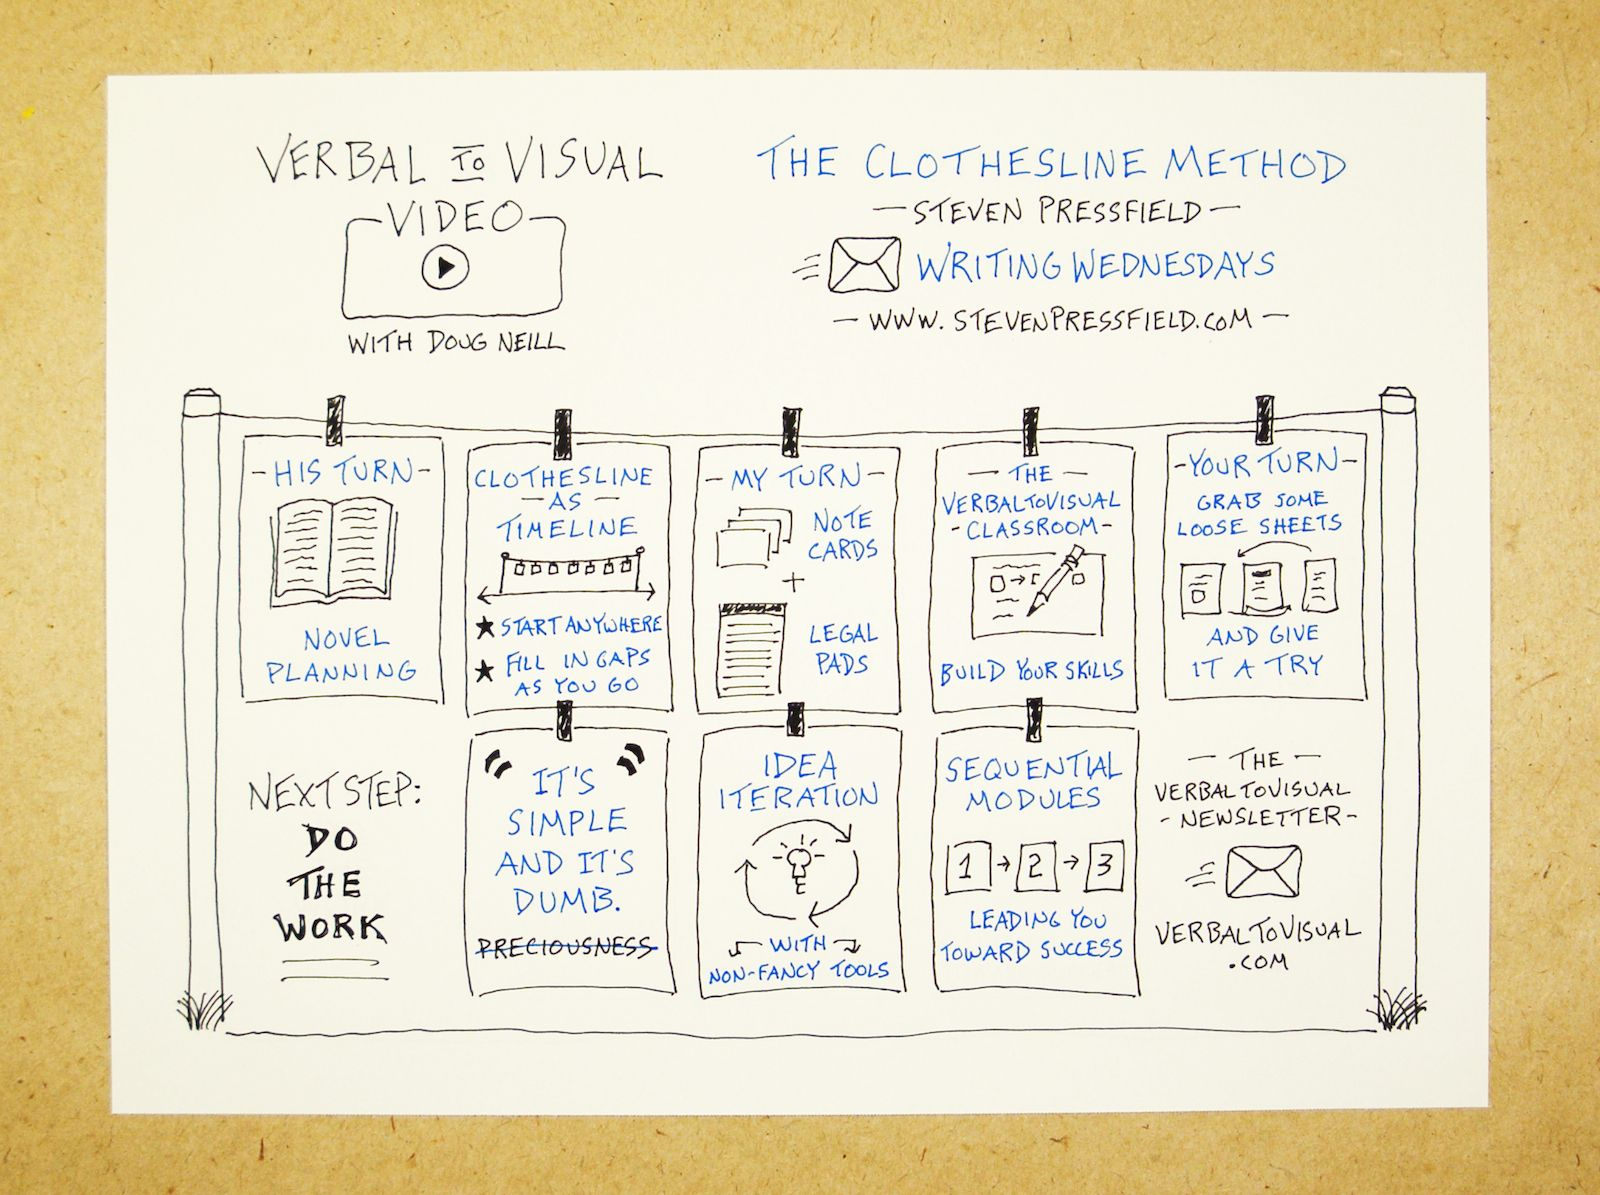 VERBAL TO VISUAL
VIDEO
WITH DOUG NEILL
THE CLOTHESLINE METHOD
— STEVEN PRESSFIELD —
WRITING WEDNESDAYS
— WWW.STEVENPRESSFIELD.COM —
- HIS TURN -
NOVEL
PLANNING
CLOTHESLINE
— AS —
TIMELINE
★ START ANYWHERE
★ FILL IN GAPS
AS YOU GO
- MY TURN -
NOTE
CARDS
+
LEGAL
PADS
— THE —
VERBALTOVISUAL
- CLASSROOM -
BUILD YOUR SKILLS
- YOUR TURN -
GRAB SOME
LOOSE SHEETS
AND GIVE
IT A TRY
NEXT STEP:
DO
THE
WORK
"IT'S
SIMPLE
AND IT'S
DUMB."
PRECIOUSNESS
IDEA
ITERATION
WITH
NON-FANCY TOOLS
SEQUENTIAL
MODULES
1 → 2 → 3
LEADING YOU
TOWARD SUCCESS
— THE —
VERBALTOVISUAL
- NEWSLETTER -
VERBALTOVISUAL
.COM